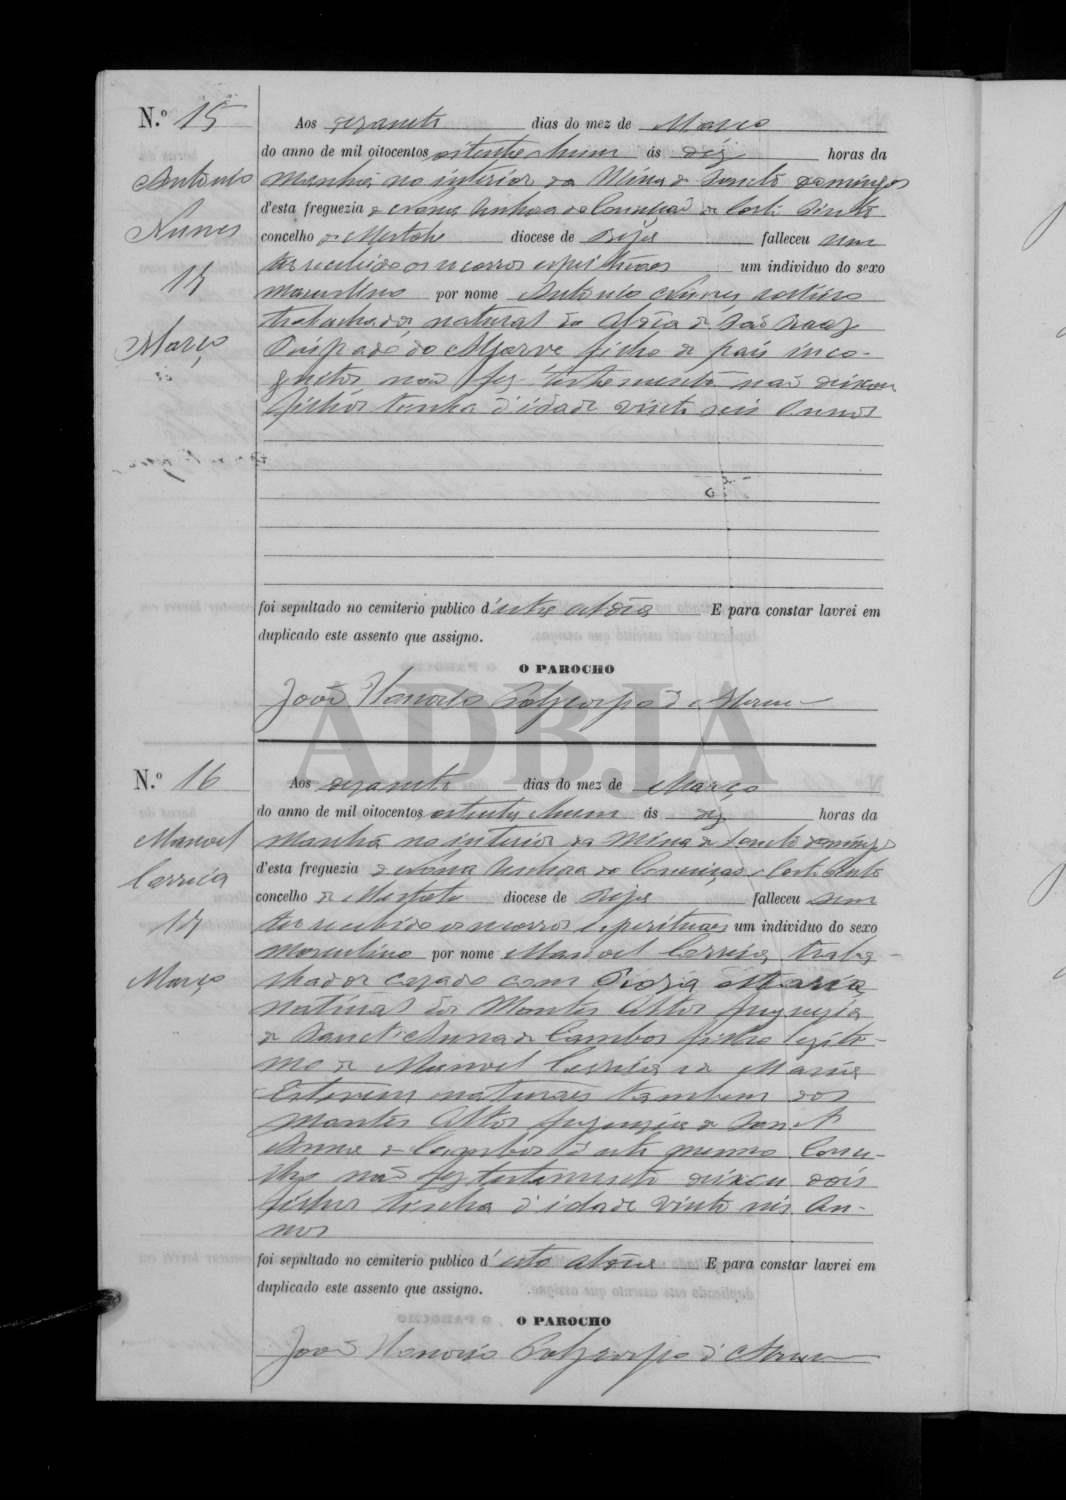 N.º 15
Aos dezaneto dias do mez de Março
do anno de mil oitocentos oitenta e hum ás dez horas da
Manhã no interior da Mina de Sancto Domingos
d'esta freguezia de Nossa Senhora da Conceição de Corte Pinto
concelho de Mertola diocese de Beja falleceu sem
ter recebido os socorros espirituaes um individuo do sexo
masculino por nome Antonio Nunes solteiro
trabalhador natural da Aldeia de São Braz
Bispado do Algarve filho de pais inco-
gnitos, não fez testamento não deixou
filhos tinha d'idade vinte seis Annos
Antonio
Nunes
Março
foi sepultado no cemiterio publico d'esta aldeia E para constar lavrei em
duplicado este assento que assigno.
O PAROCHO
João Honorio Polycarpo d'
ADBJA
N.º 16
Aos dezaneto dias do mez de Março
do anno de mil oitocentos oitenta e hum ás dez horas da
Manhã no interior da Mina de Sancto Domingos
d'esta freguezia de Nossa Senhora da Conceição de Corte Pinto
concelho de Mertola diocese de Beja falleceu sem
ter recebido os socorros espirituaes um individuo do sexo
masculino por nome Manoel Correia traba-
lhador cazado com Maria
natural dos Montes Altos freguezia
de Sanct'Anna de Cambas filho legiti-
mo de Manoel Correia e de Maria
naturaes tambem dos
Montes Altos freguezia de Sanct'
Anna de Cambas d'este mesmo Conce-
lho não fez testamento deixou dois
filhos tinha d'idade vinte seis An-
nos
Manoel
Correia
Março
foi sepultado no cemiterio publico d'esta aldeia E para constar lavrei em
duplicado este assento que assigno.
O PAROCHO
João Honorio Polycarpo d'